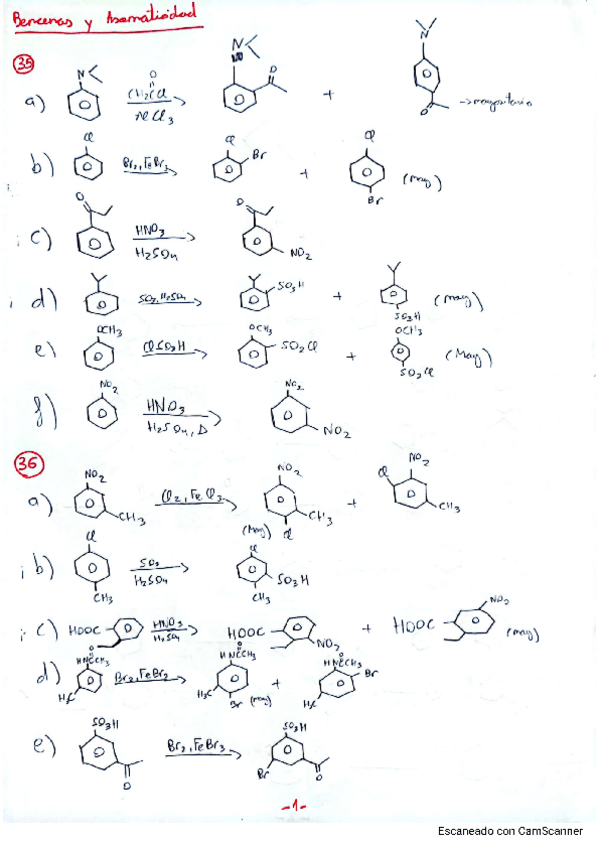 Bencenos y Aromaticidad
35
a) N O CH3CCl AlCl3 N O + N O → mayoritario
b) Cl Br2, FeBr3 Cl Br + Cl Br (may)
c) O HNO3 H2SO4 O NO2
d) SO3, H2SO4 SO3H + SO3H (may)
e) OCH3 ClSO3H OCH3 SO2Cl + OCH3 SO2Cl (May)
f) NO2 HNO3 H2SO4, Δ NO2 NO2
36
a) NO2 CH3 Cl2, FeCl3 NO2 CH3 Cl (May) + Cl NO2 CH3
b) Cl CH3 SO3 H2SO4 Cl SO3H CH3
c) HOOC HNO3 H2SO4 HOOC NO2 + HOOC NO2 (may)
d) O HNCCH3 H3C Br2, FeBr2 O HNCCH3 H3C Br (may) + O HNCCH3 Br H3C
e) SO3H O Br2, FeBr3 SO3H Br O
-1-
Escaneado con CamScanner